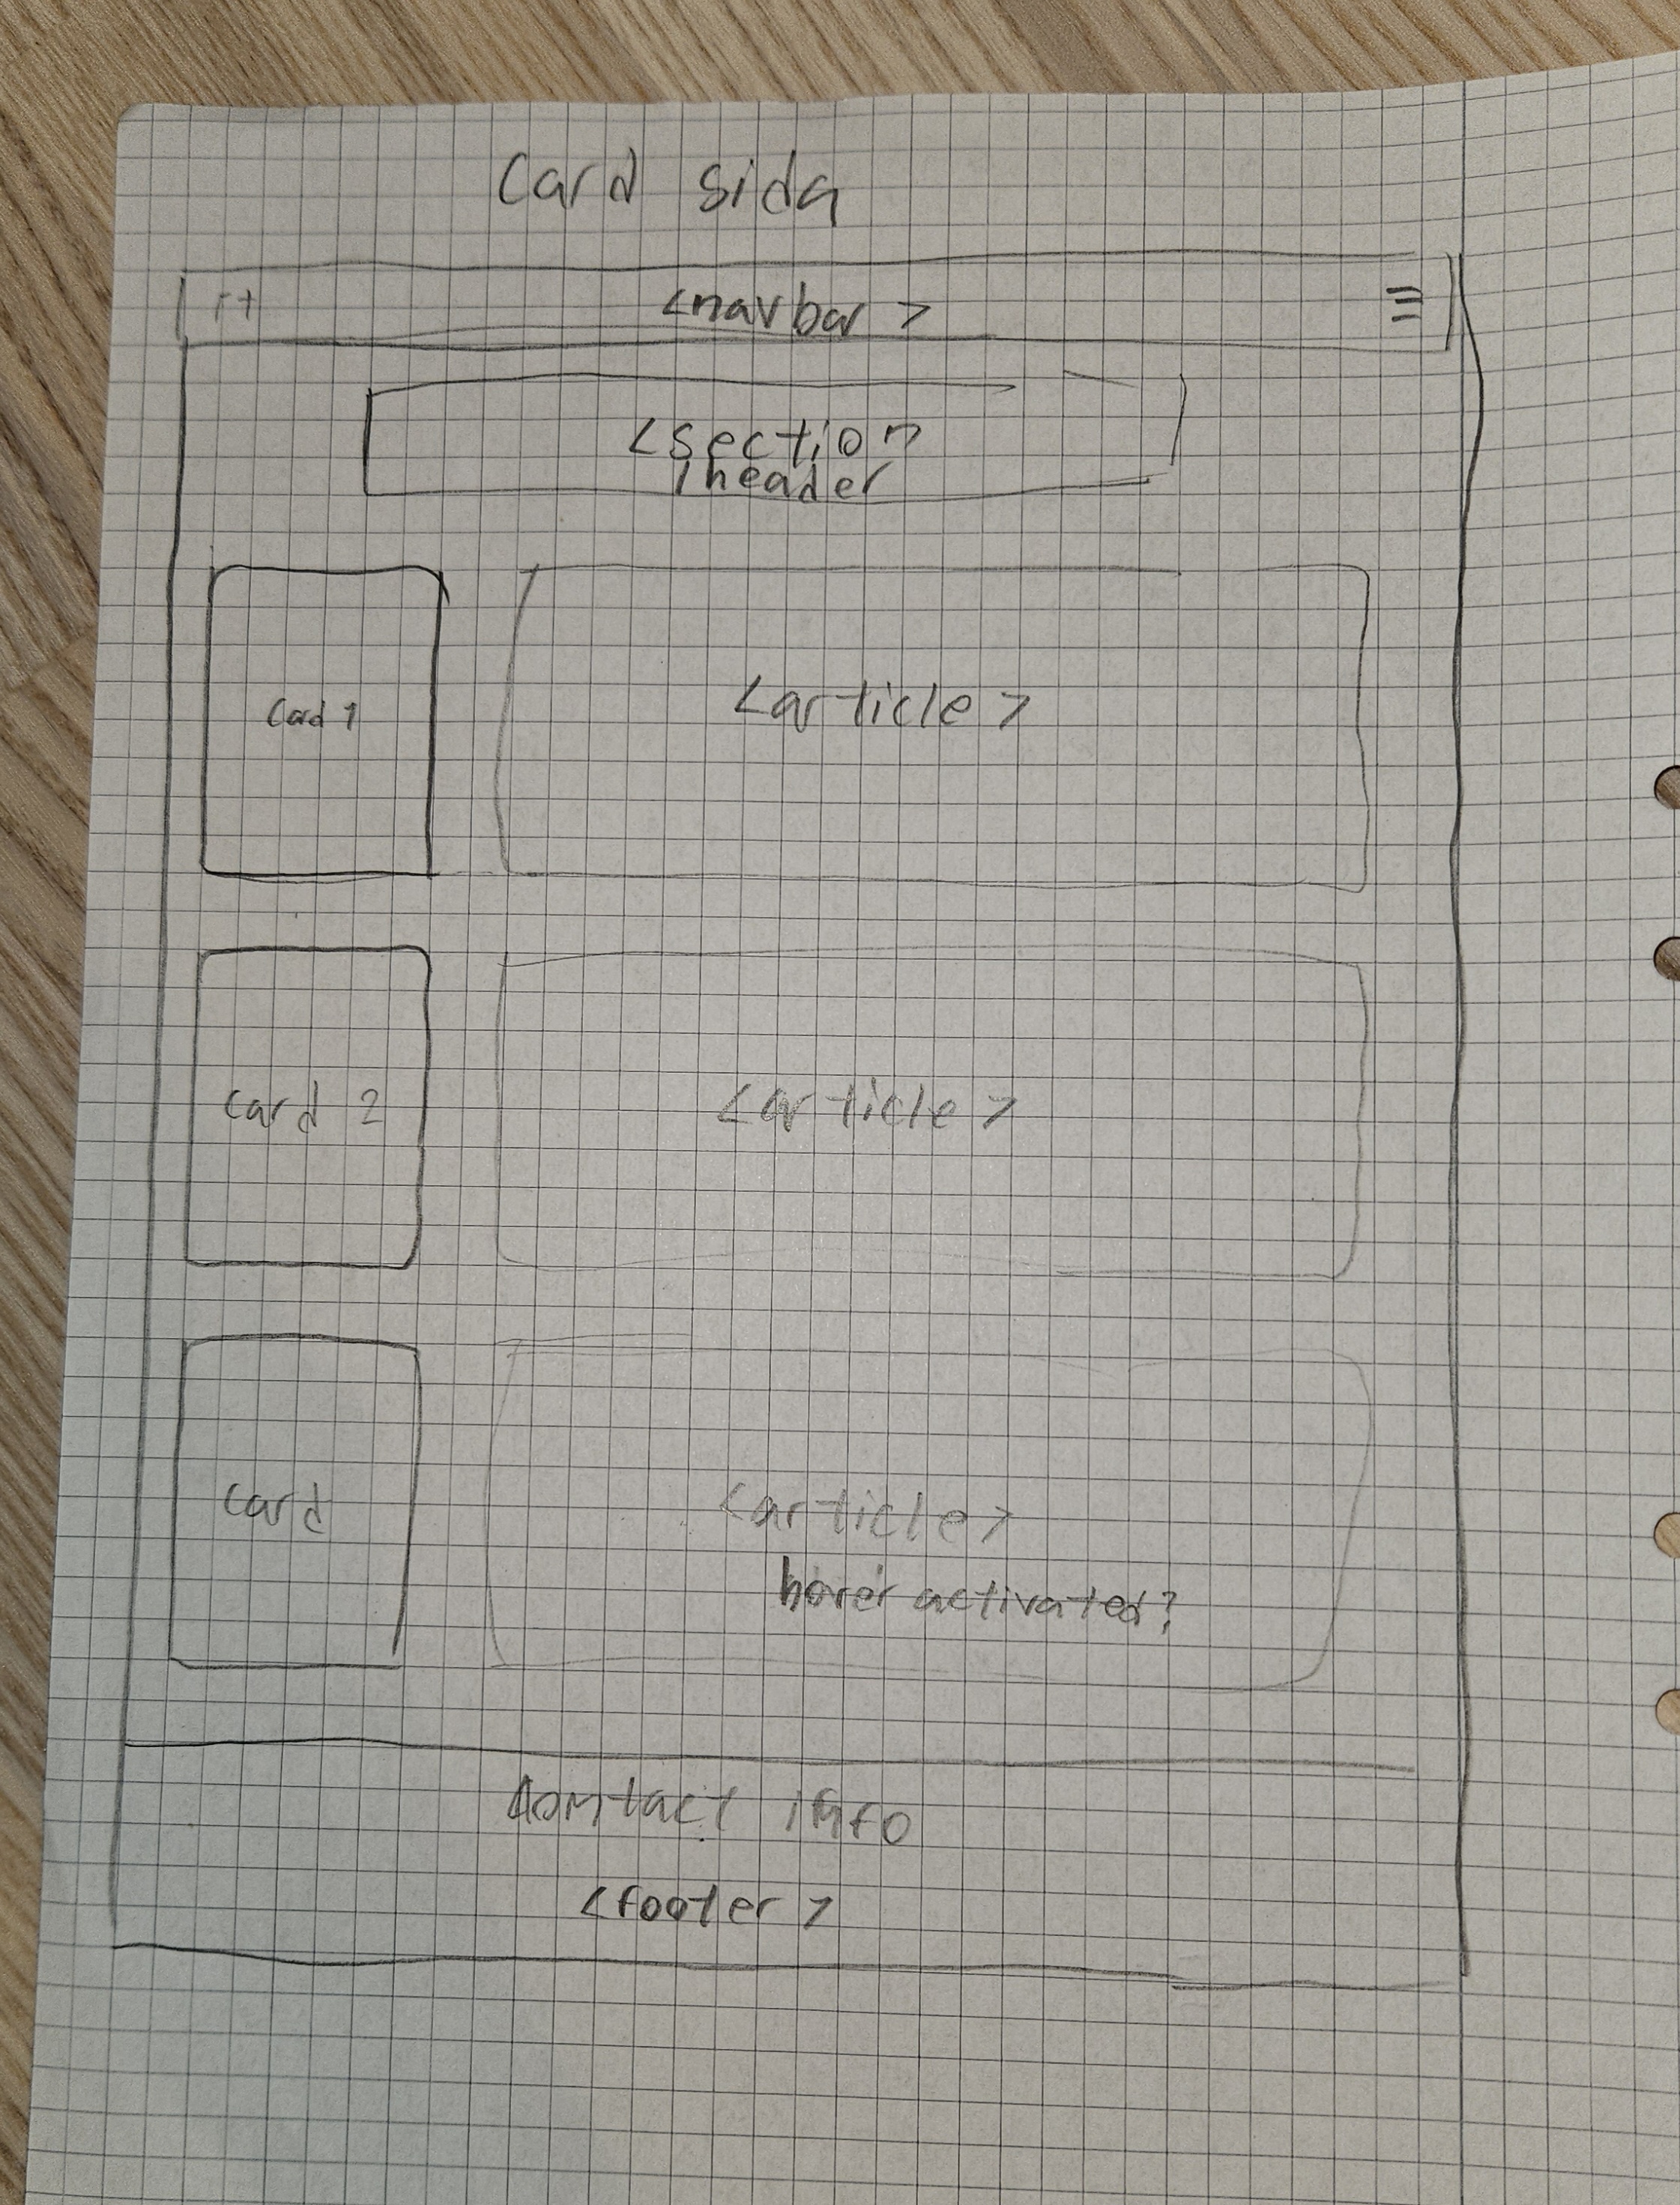 Card sida
<navbar >
<section
/header
Card 1
<article>
card 2
<article>
card
<article>
hover activated?
Contact info
<footer>